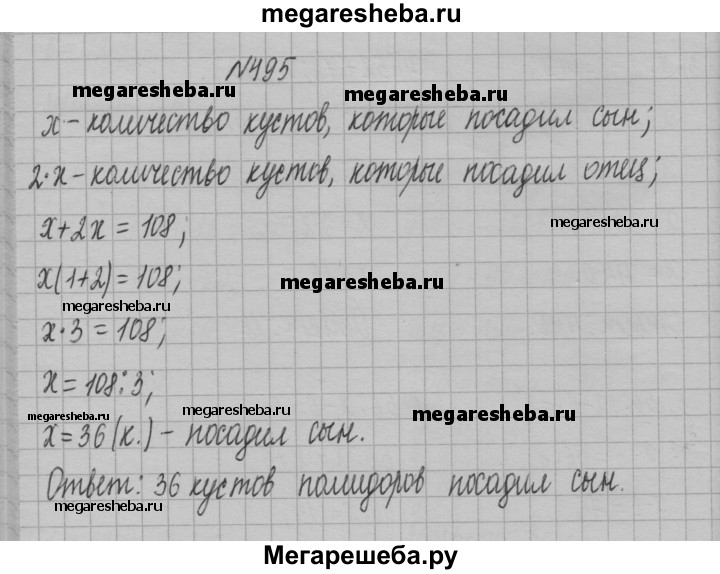 megaresheba.ru
№495
megaresheba.ru
megaresheba.ru
х - количество кустов, которые посадил сын;
2·х - количество кустов, которые посадил отец;
х+2х = 108;
megaresheba.ru
х(1+2) = 108;
megaresheba.ru
megaresheba.ru
х·3 = 108;
х = 108:3;
megaresheba.ru
megaresheba.ru
megaresheba.ru
х = 36 (к.) - посадил сын.
Ответ: 36 кустов помидоров посадил сын.
megaresheba.ru
Мегарешеба.ру